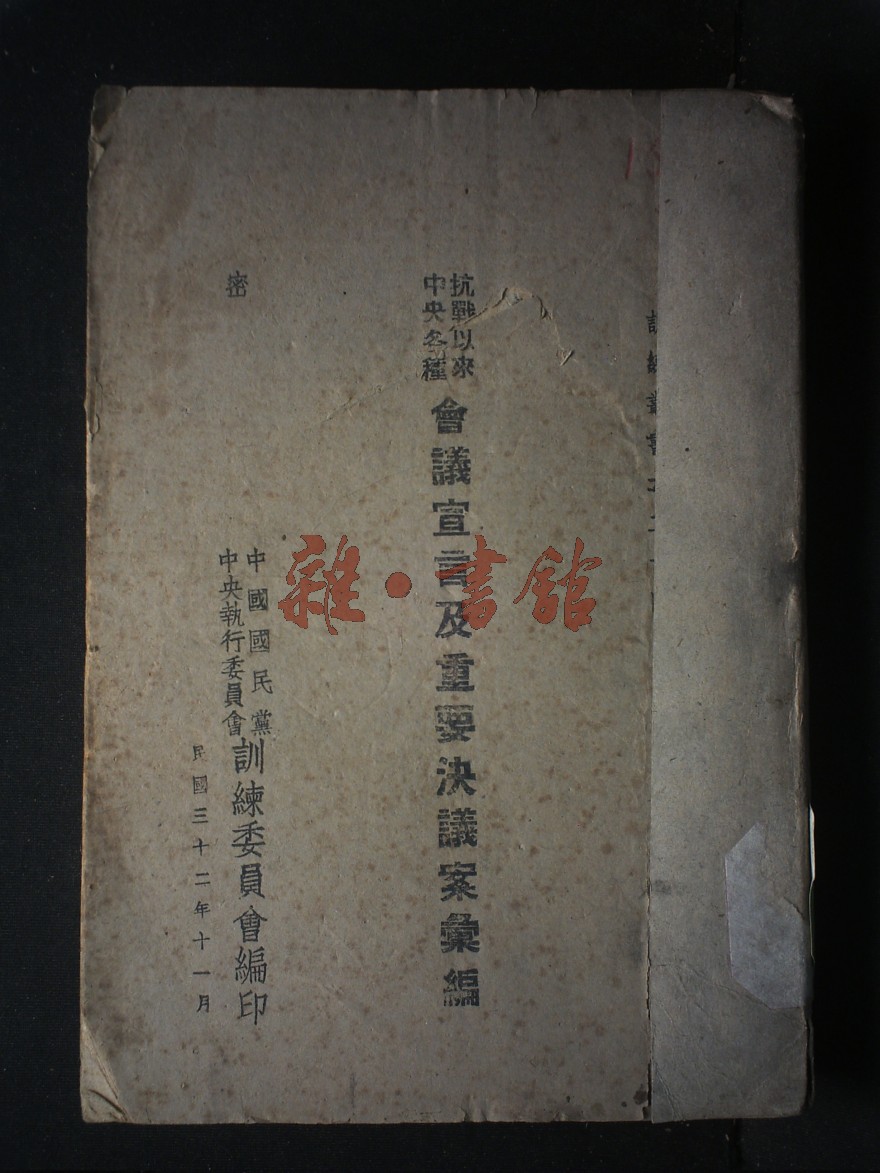 訓練叢書
抗戰以來
中央各種
會議宣言及重要決議案彙編
密
中國國民黨
中央執行委員會
訓練委員會編印
民國三十二年十一月
雜·書館